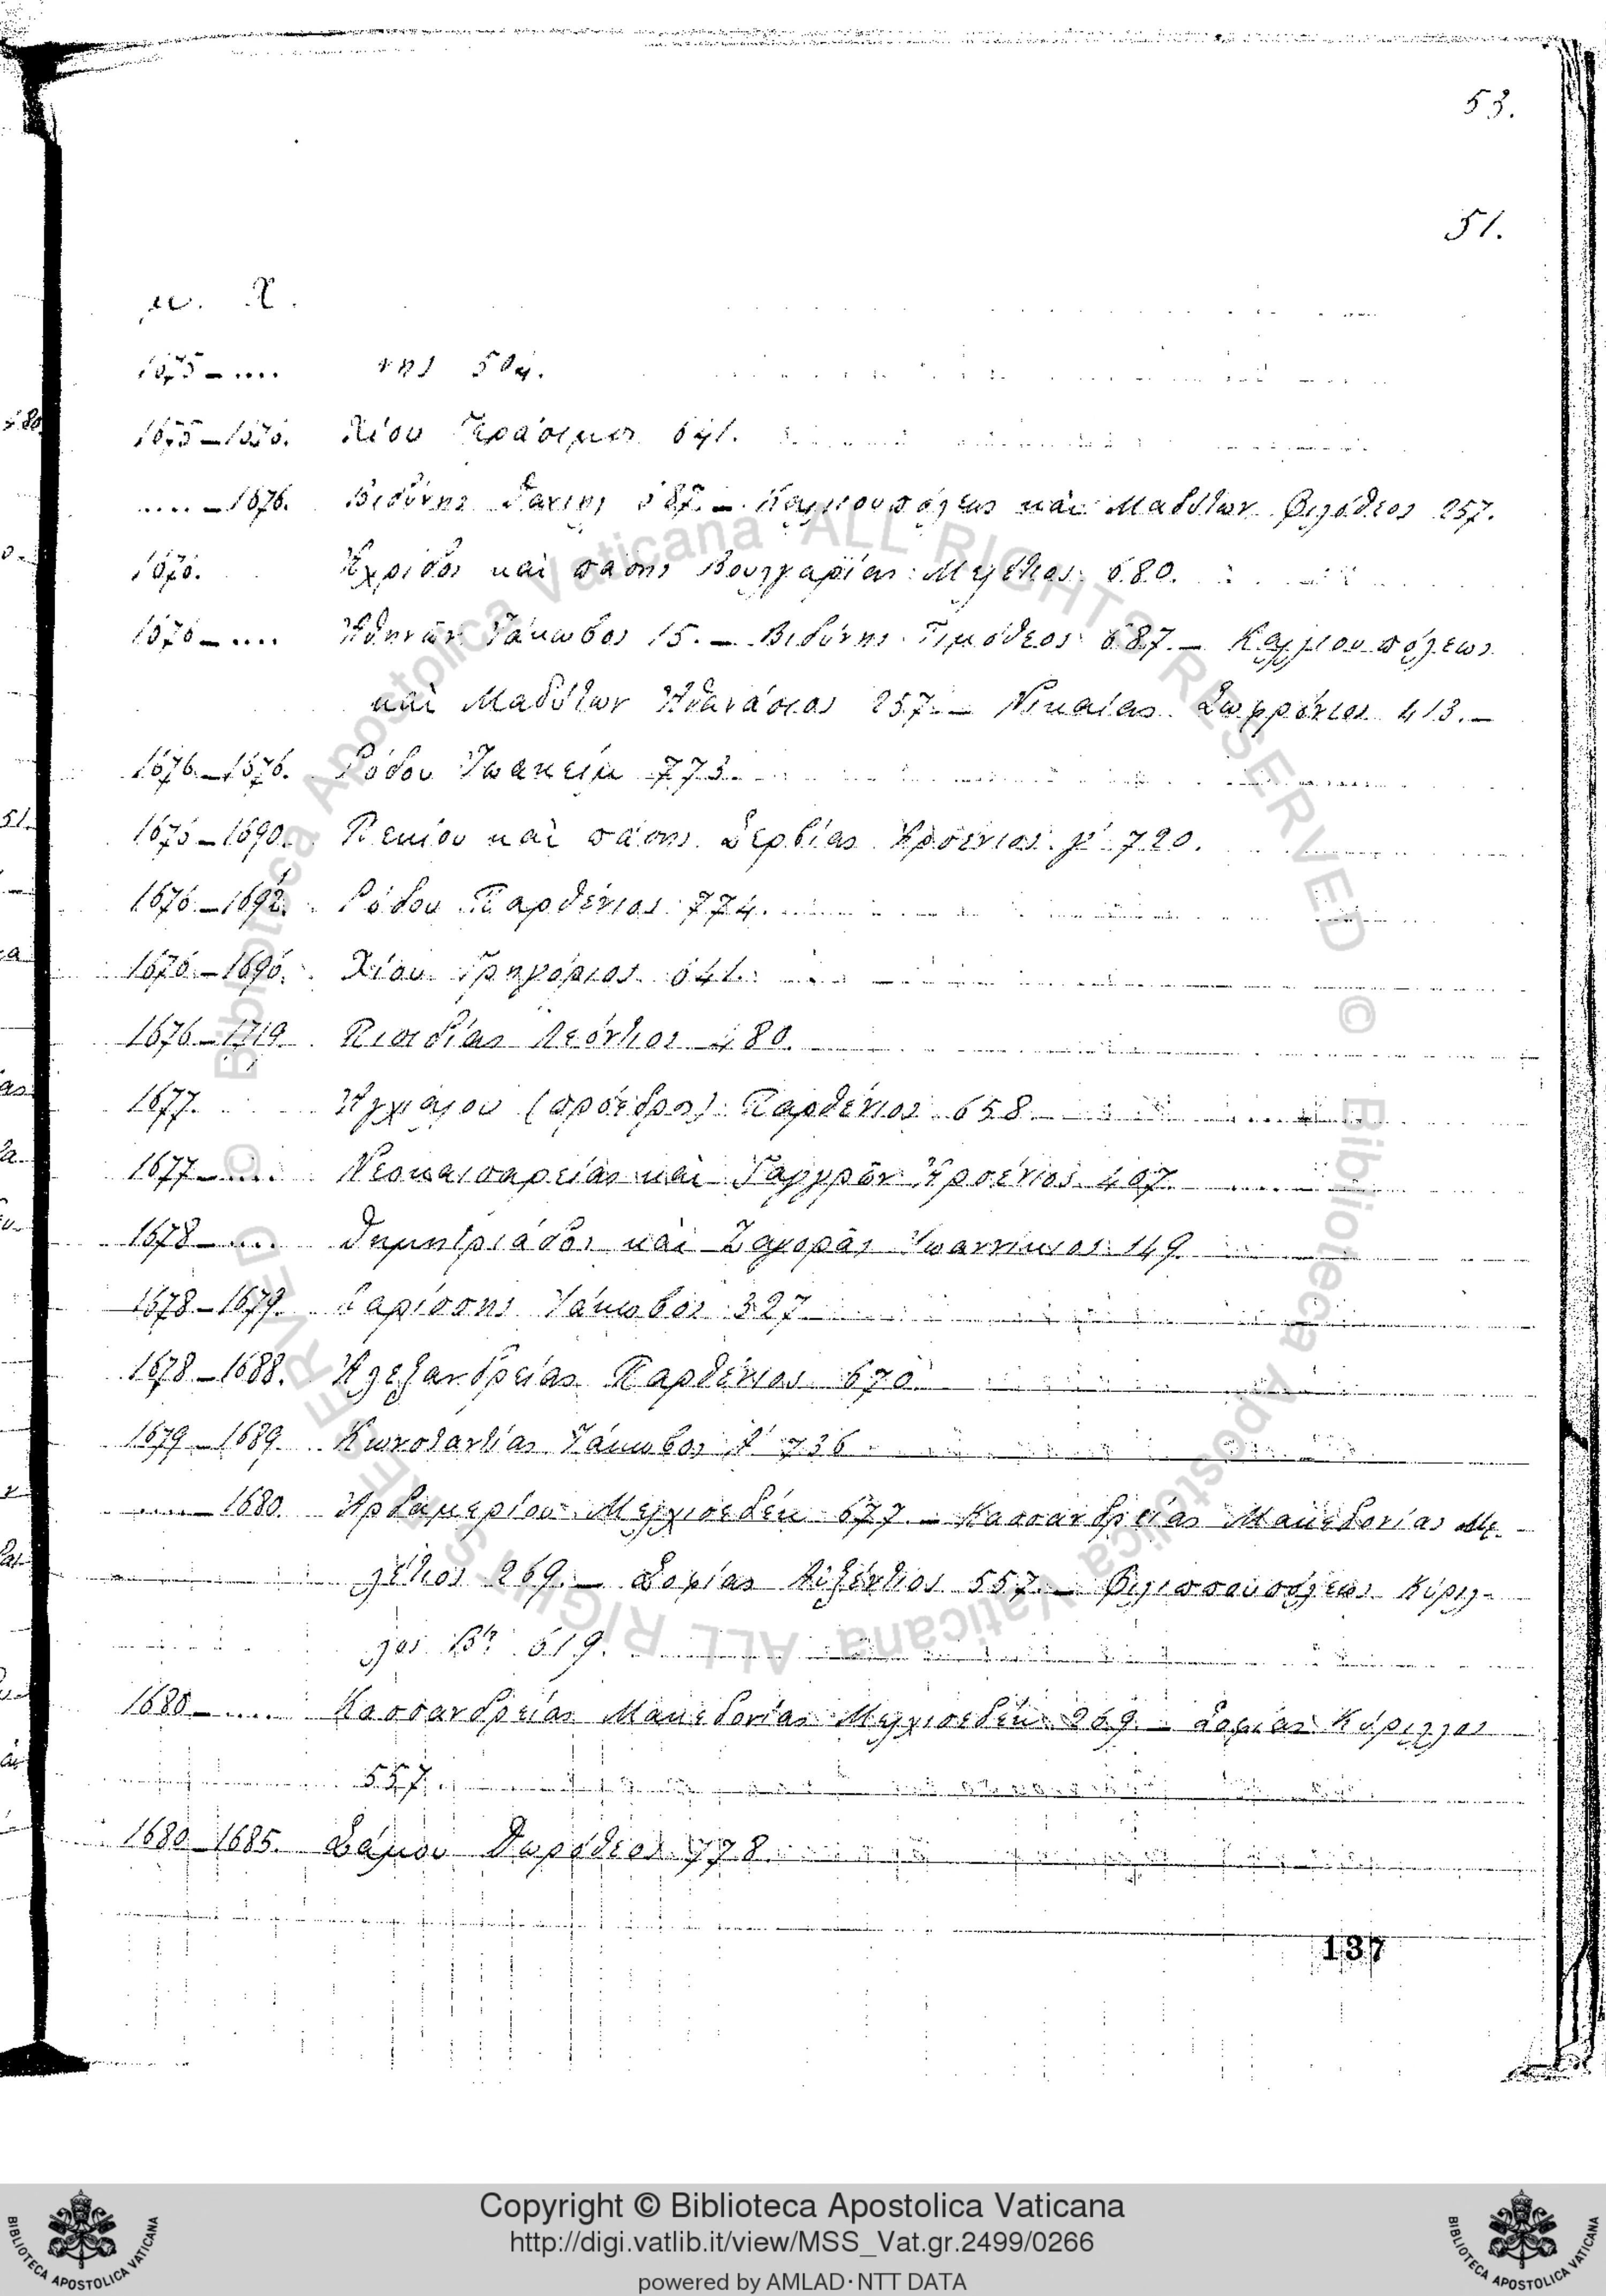 53.
51.
μ. Χ.
1675 – .... 504.
1675 – 1676. Χίου Γεράσιμος 641.
.... – 1676. Βιδύνης 687. – Καλλιουπόλεως καὶ Μαδύτων Φιλόθεος 257.
1676. Ἀχρίδος καὶ πάσης Βουλγαρίας Μελέτιος 680.
1676 – .... Ἀθηνῶν Ἰάκωβος 15. – Βιδύνης Τιμόθεος 687. – Καλλιουπόλεως
καὶ Μαδύτων Ἀθανάσιος 257. – Νικαίας Σωφρόνιος 413. –
1676 – 1676. Ρόδου Ἰωακεὶμ 773.
1676 – 1690. Πεκίου καὶ πάσης Σερβίας Ἀρσένιος γ΄ 720.
1676 – 1692. Ρόδου Παρθένιος 774.
1676 – 1696. Χίου Γρηγόριος 641.
1676 – 1719. Πισιδίας Λεόντιος 480.
1677. (πρόεδρος) Παρθένιος 658.
1677 – .... Νεοκαισαρείας καὶ Γαγγρῶν Ἀρσένιος 407.
1678 – .... Δημητριάδος καὶ Ζαγορᾶς Ἰωαννίκιος 149.
1678 – 1679. Λαρίσσης Ἰάκωβος 327
1678 – 1688. Ἀλεξανδρείας Παρθένιος 670.
1679 – 1689 Κωνσταντίας Ἰάκωβος 736
.... – 1680 Ἀρδαμερίου Μελχισεδὲκ 677. – Κασσανδρείας Μακεδονίας Με-
λέτιος 269. – Σοφίας Αὐξέντιος 557. – Φιλιππουπόλεως Κύριλ-
λος Βος 619.
1680 – .... Κασσανδρείας Μακεδονίας Μελχισεδὲκ 269. – Σοφίας Κύριλλος
557.
1680 – 1685. Σάμου Δωρόθεος 778.
137
Copyright © Biblioteca Apostolica Vaticana
http://digi.vatlib.it/view/MSS_Vat.gr.2499/0266
powered by AMLAD·NTT DATA